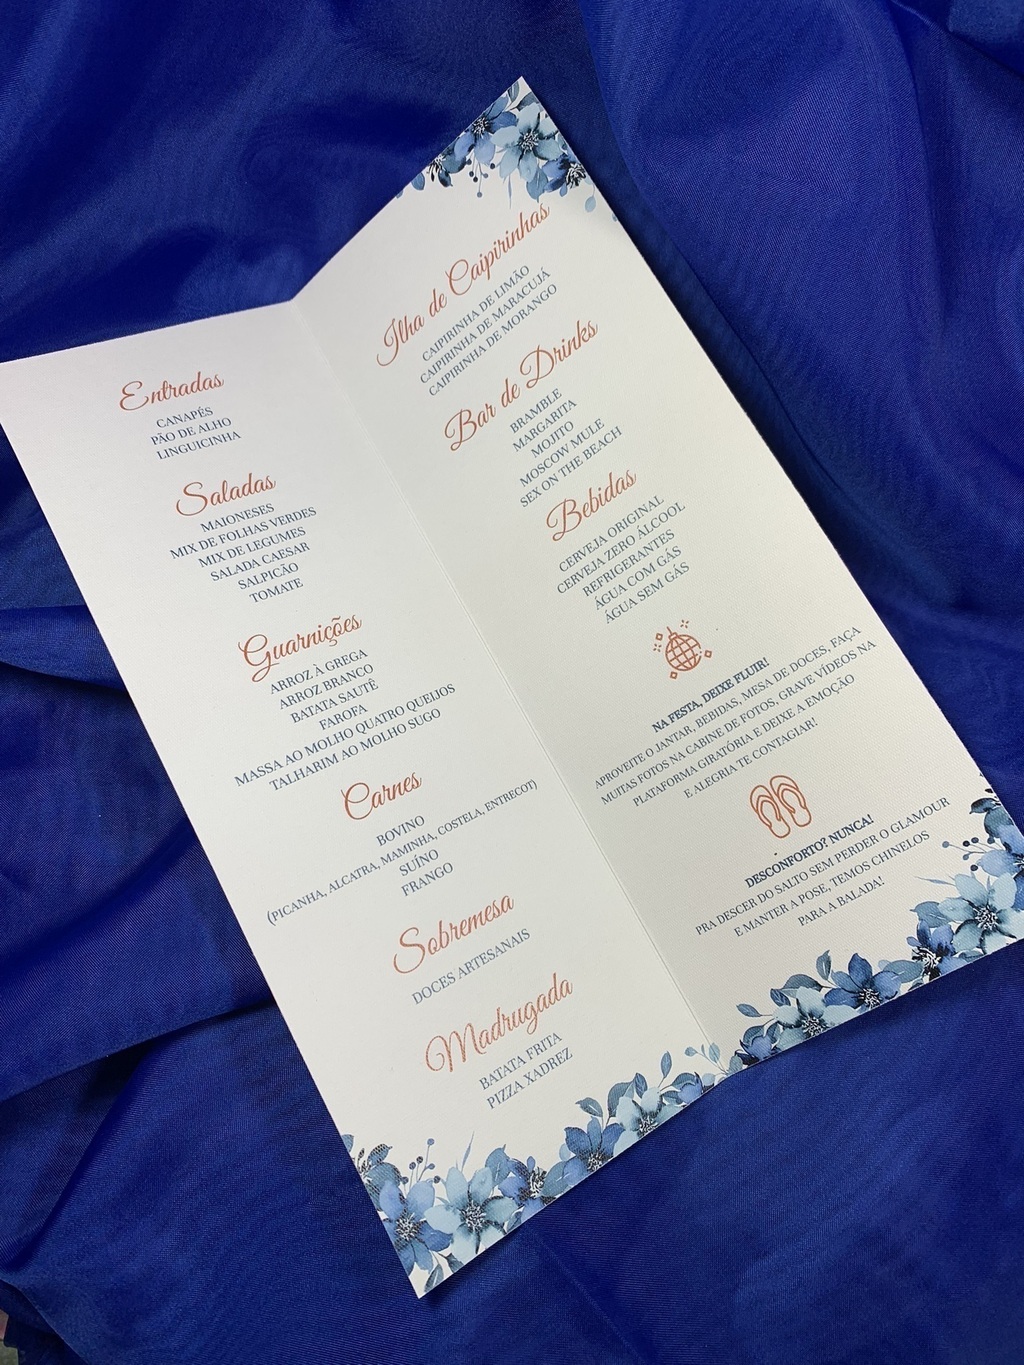 Entradas
CANAPÉS
PÃO DE ALHO
LINGUICINHA
Saladas
MAIONESES
MIX DE FOLHAS VERDES
MIX DE LEGUMES
SALADA CAESAR
SALPICÃO
TOMATE
Guarnições
ARROZ À GREGA
ARROZ BRANCO
BATATA SAUTÊ
FAROFA
MASSA AO MOLHO QUATRO QUEIJOS
TALHARIM AO MOLHO SUGO
Carnes
BOVINO
(PICANHA, ALCATRA, MAMINHA, COSTELA, ENTRECOT)
SUÍNO
FRANGO
Sobremesa
DOCES ARTESANAIS
Madrugada
BATATA FRITA
PIZZA XADREZ
Ilha de Caipirinhas
CAIPIRINHA DE LIMÃO
CAIPIRINHA DE MARACUJÁ
CAIPIRINHA DE MORANGO
Bar de Drinks
BRAMBLE
MARGARITA
MOJITO
MOSCOW MULE
SEX ON THE BEACH
Bebidas
CERVEJA ORIGINAL
CERVEJA ZERO ÁLCOOL
REFRIGERANTES
ÁGUA COM GÁS
ÁGUA SEM GÁS
NA FESTA, DEIXE FLUIR!
APROVEITE O JANTAR, BEBIDAS, MESA DE DOCES, FAÇA
MUITAS FOTOS NA CABINE DE FOTOS, GRAVE VÍDEOS NA
PLATAFORMA GIRATÓRIA E DEIXE A EMOÇÃO
E ALEGRIA TE CONTAGIAR!
DESCONFORTO? NUNCA!
PRA DESCER DO SALTO SEM PERDER O GLAMOUR
E MANTER A POSE, TEMOS CHINELOS
PARA A BALADA!